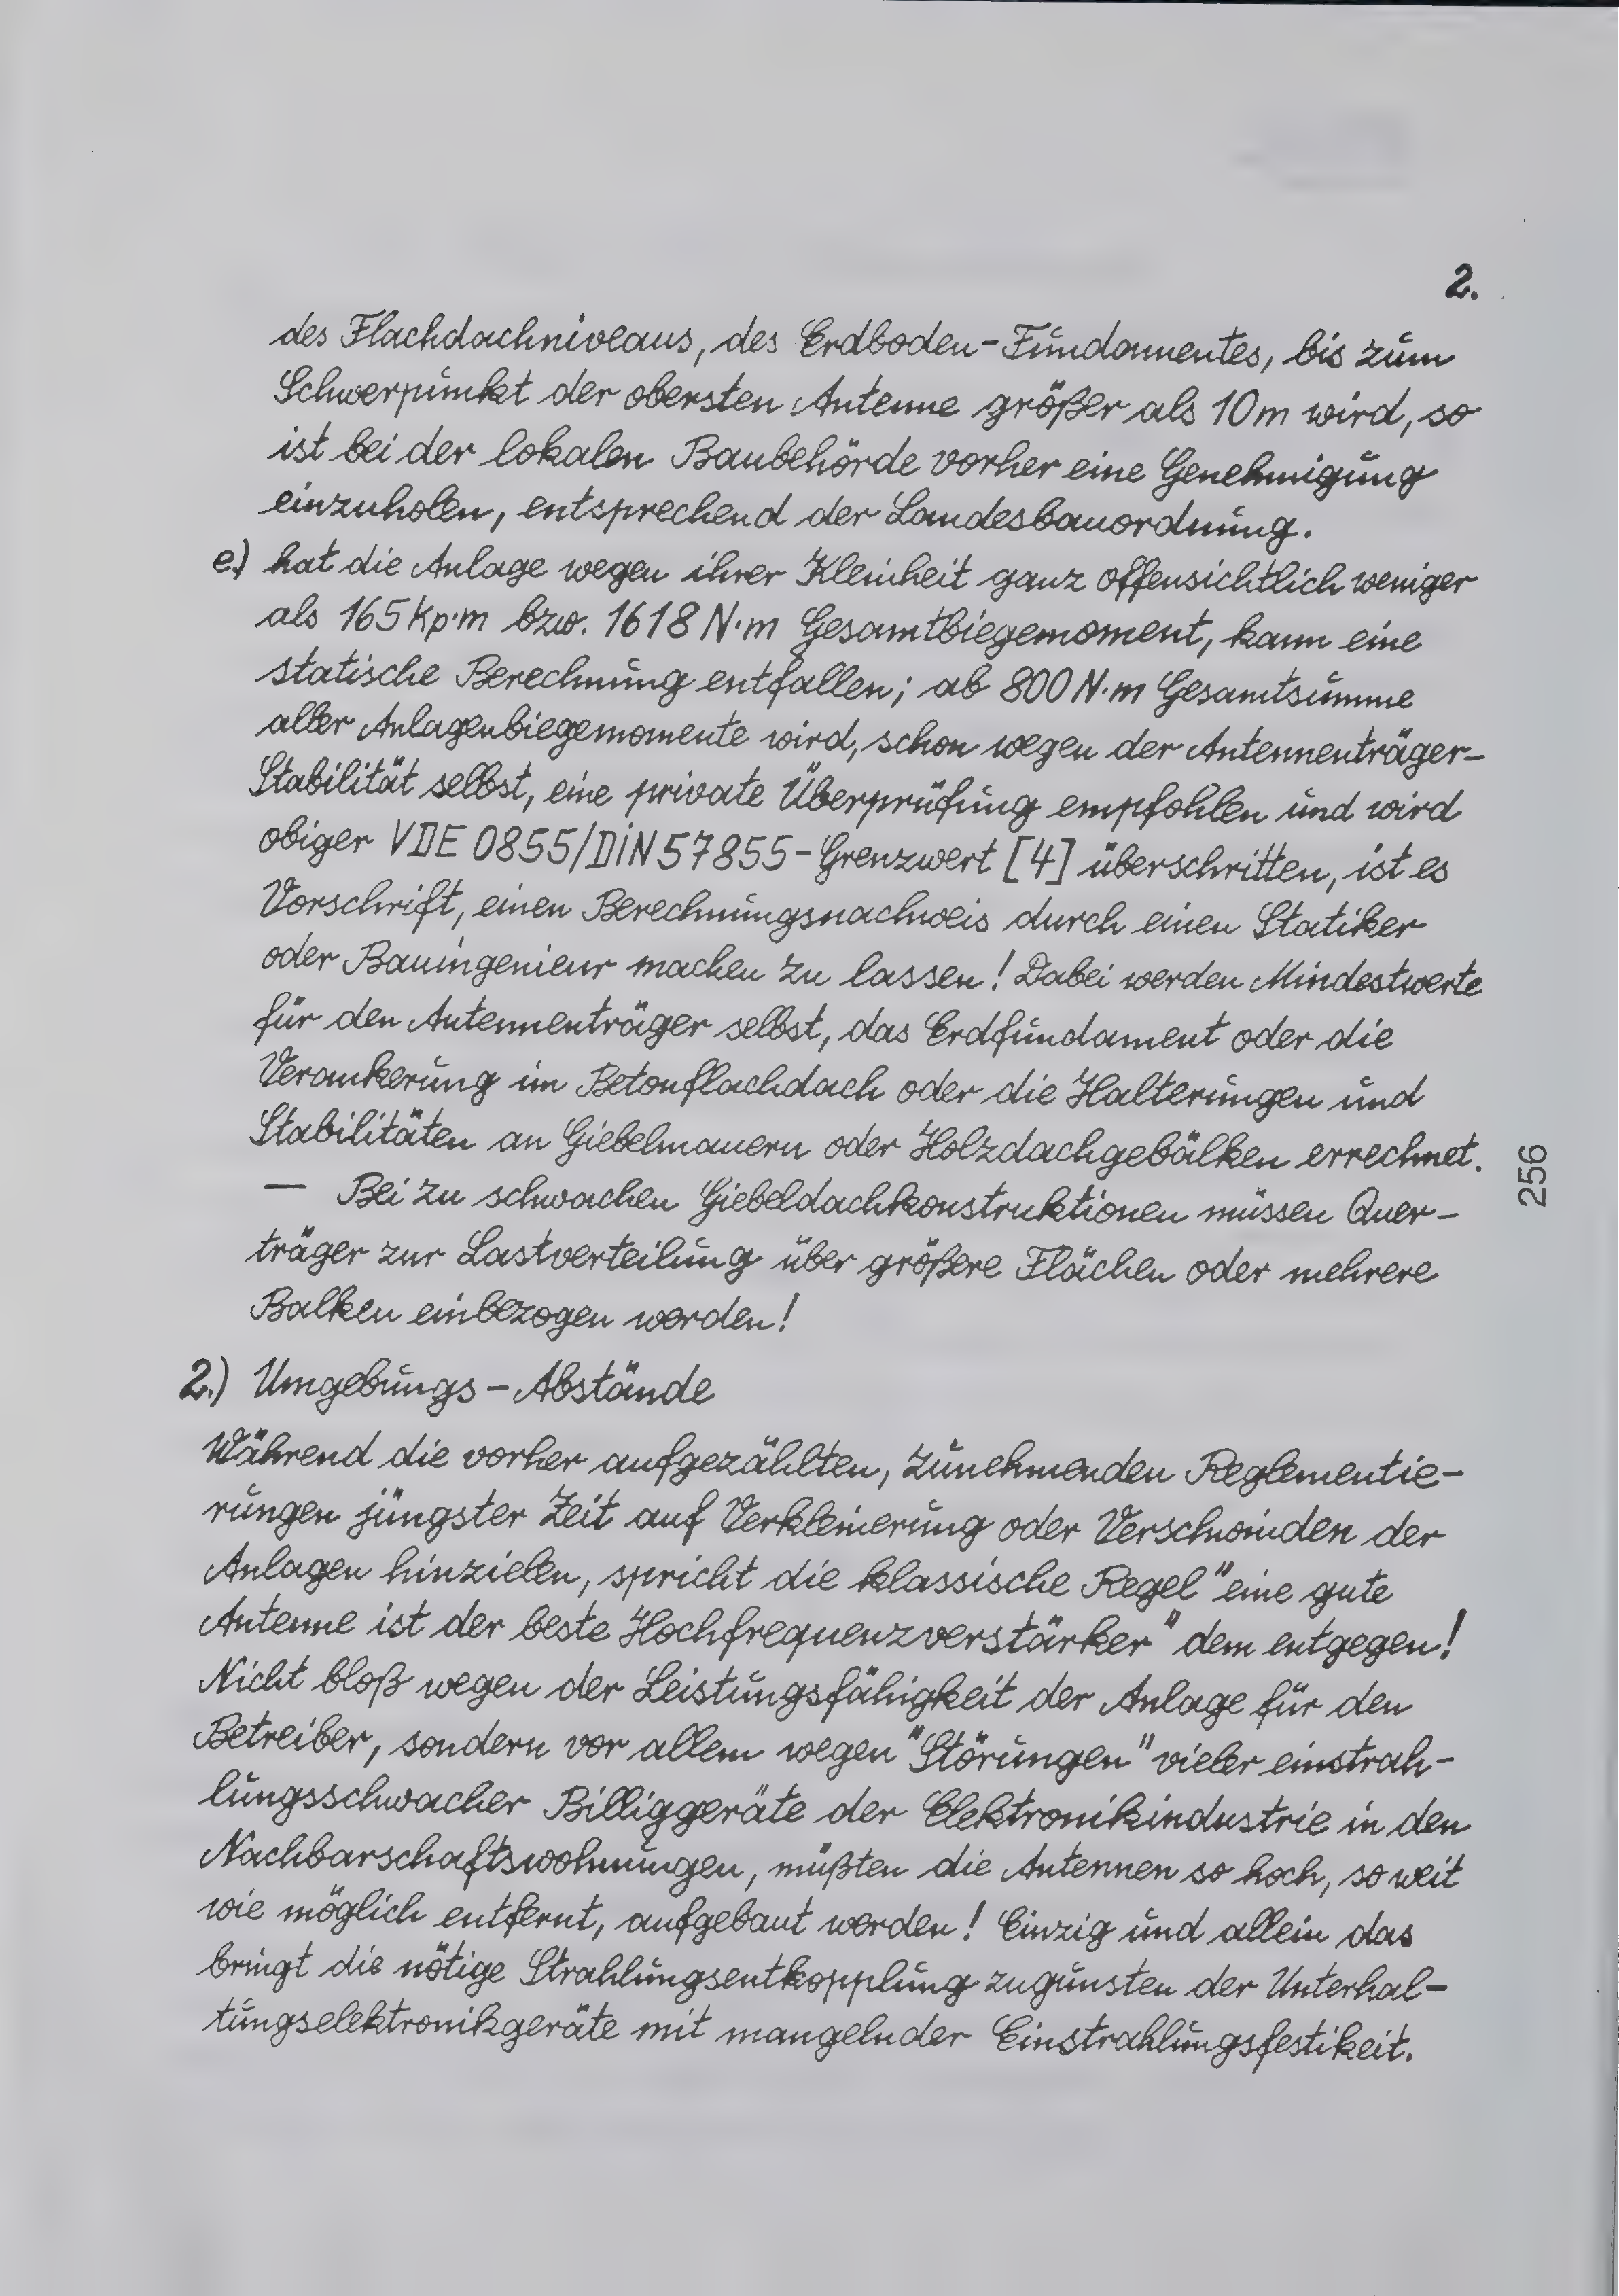 2.
des Flachdachniveaus, des Erdboden-Fundamentes, bis zum
Schwerpunkt der obersten Antenne größer als 10m wird, so
ist bei der lokalen Baubehörde vorher eine Genehmigung
einzuholen, entsprechend der Landesbauordnung.
e.) hat die Anlage wegen ihrer Kleinheit ganz offensichtlich weniger
als 165kp·m bzw. 1618 N·m Gesamtbiegemoment, kann eine
statische Berechnung entfallen; ab 800N·m Gesamtsumme
aller Anlagenbiegemomente wird, schon wegen der Antennenträger-
Stabilität selbst, eine private Überprüfung empfohlen und wird
obiger VDE 0855/DIN57855-Grenzwert [4] überschritten, ist es
Vorschrift, einen Berechnungsnachweis durch einen Statiker
oder Bauingenieur machen zu lassen! Dabei werden Mindestwerte
für den Antennenträger selbst, das Erdfundament oder die
Verankerung im Betonflachdach oder die Halterungen und
Stabilitäten an Giebelmauern oder Holzdachgebälken errechnet.
— Bei zu schwachen Giebeldachkonstruktionen müssen Quer-
träger zur Lastverteilung über größere Flächen oder mehrere
Balken einbezogen werden!
256
2.) Umgebungs-Abstände
Während die vorher aufgezählten, zunehmenden Reglementie-
rungen jüngster Zeit auf Verkleinerung oder Verschwinden der
Anlagen hinzielen, spricht die klassische Regel "eine gute
Antenne ist der beste Hochfrequenzverstärker" dem entgegen!
Nicht bloß wegen der Leistungsfähigkeit der Anlage für den
Betreiber, sondern vor allem wegen "Störungen" vieler einstrah-
lungsschwacher Billiggeräte der Elektronikindustrie in den
Nachbarschaftswohnungen, müßten die Antennen so hoch, so weit
wie möglich entfernt, aufgebaut werden! Einzig und allein das
bringt die nötige Strahlungsentkopplung zugunsten der Unterhal-
tungselektronikgeräte mit mangelnder Einstrahlungsfestikeit.